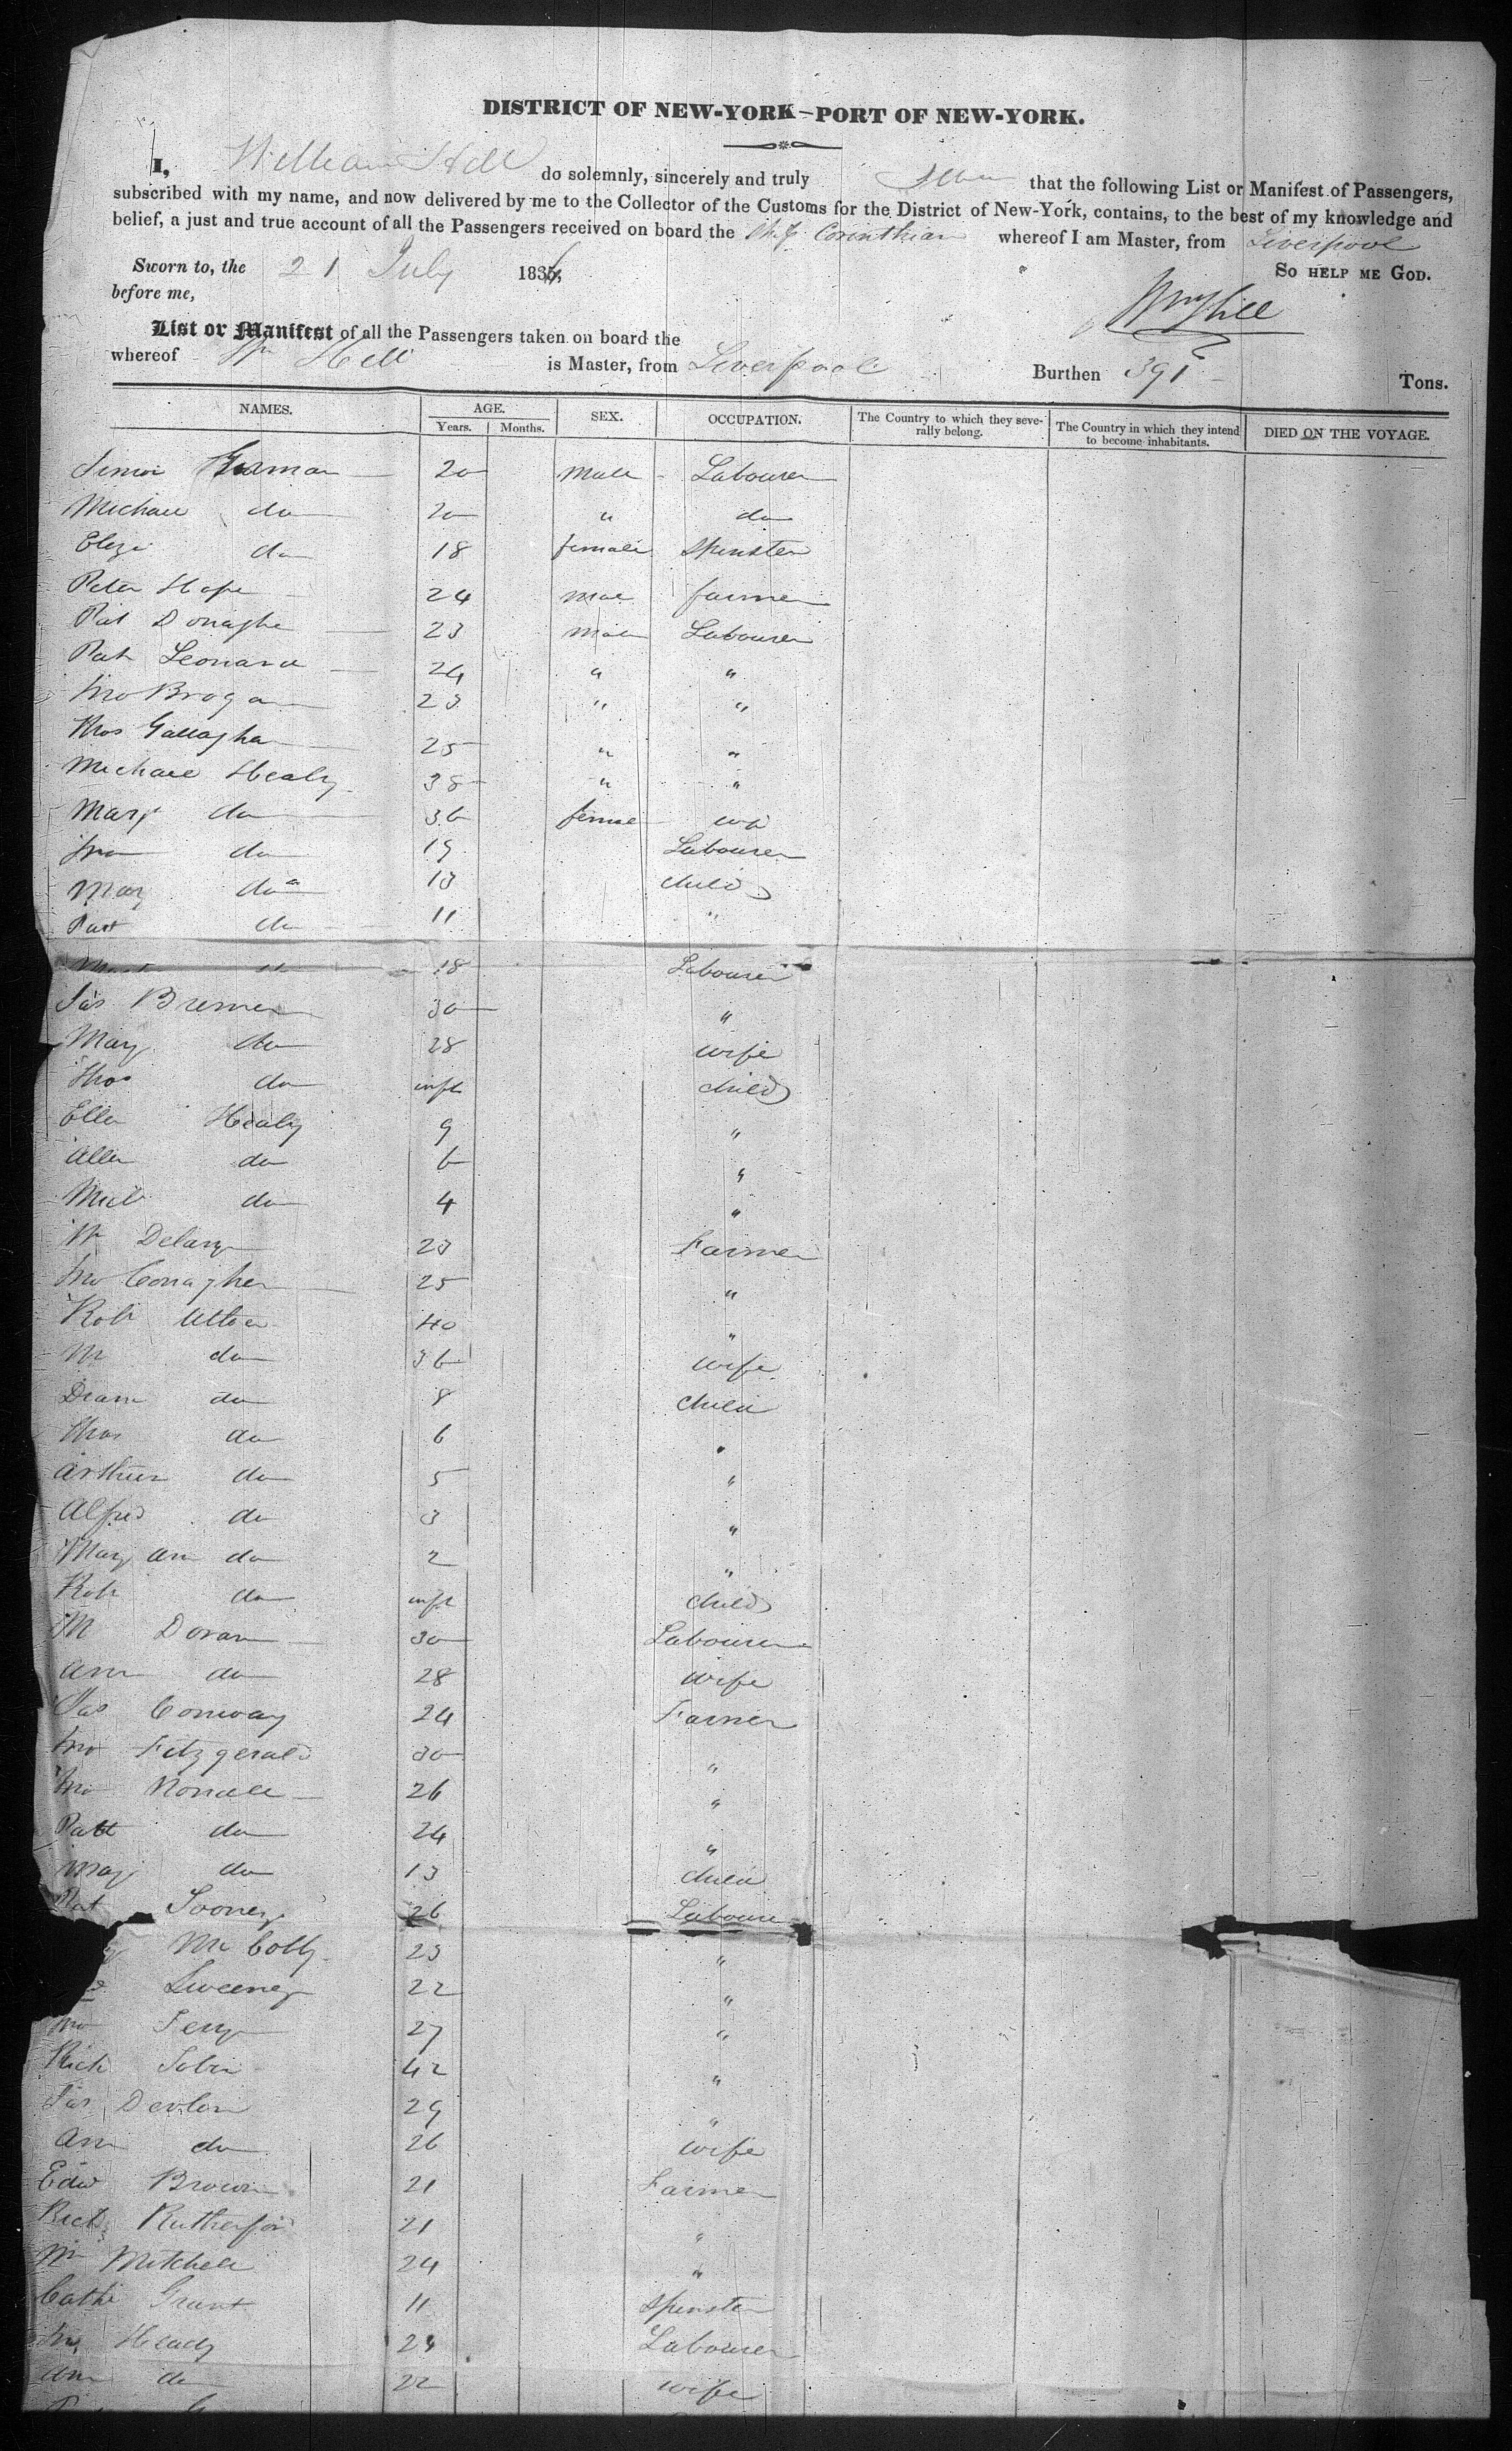 DISTRICT OF NEW-YORK—PORT OF NEW-YORK.
I, William Hill do solemnly, sincerely and truly that the following List or Manifest of Passengers,
subscribed with my name, and now delivered by me to the Collector of the Customs for the District of New-York, contains, to the best of my knowledge and
belief, a just and true account of all the Passengers received on board the Ship Corinthian whereof I am Master, from Liverpool
Sworn to, the 21 July 183 So HELP ME GOD.
before me, Wm Hill
List or Manifest of all the Passengers taken on board the
whereof Wm Hill is Master, from Liverpool Burthen 391 Tons.
NAMES. AGE. SEX. OCCUPATION. The Country to which they seve- The Country in which they intend DIED ON THE VOYAGE.
Years. Months. rally belong. to become inhabitants.
20 Male Labourer
Michael do 20 " do
Eliza do 18 female Spinster
Peter Hope 24 farmer
Pat Donaghe 23 male Labourer
Pat Leonard 24 " "
Jno Brogan 23 " "
Thos Gallagher 25 " "
Michael Healy 38 " "
Mary do 36
Jno do 19 Labourer
Mary do 13 child
Patt do 11 "
do 18 Labourer
Jas 30 "
Mary do 28 wife
Thos do inft child
Ellen Healy 9 "
do 6 "
do 4 "
23 Farmer
Jno Conagher 25 "
Robt 40 "
M do 36 wife
do 8 child
Thos do 6 "
Arthur do 5 "
Alfred do 3 "
Mary Ann do 2 "
Robt do inft child
M Doran 30 Labourer
Ann do 28 wife
Jas Conway 24 Farmer
Jno Fitzgerald 30 "
Jno 26 "
Patt do 24 "
Mary do 13 child
Pat 26 Labourer
23 "
Sweeney 22 "
Jno 27 "
Rich Tobin 42 "
Jas Devlin 29 "
Ann do 26 wife
Edwd Brown 21 Farmer
Richd Rutherford 21 "
Wm Mitchell 24 "
Cathe Grant 11 Spinster
Jno Labourer
Ann do 22 wife